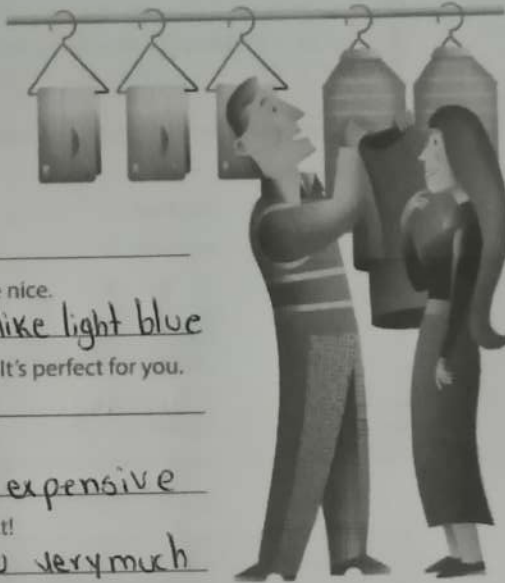 e nice.
like light blue
It's perfect for you.
expensive
t!
u very much